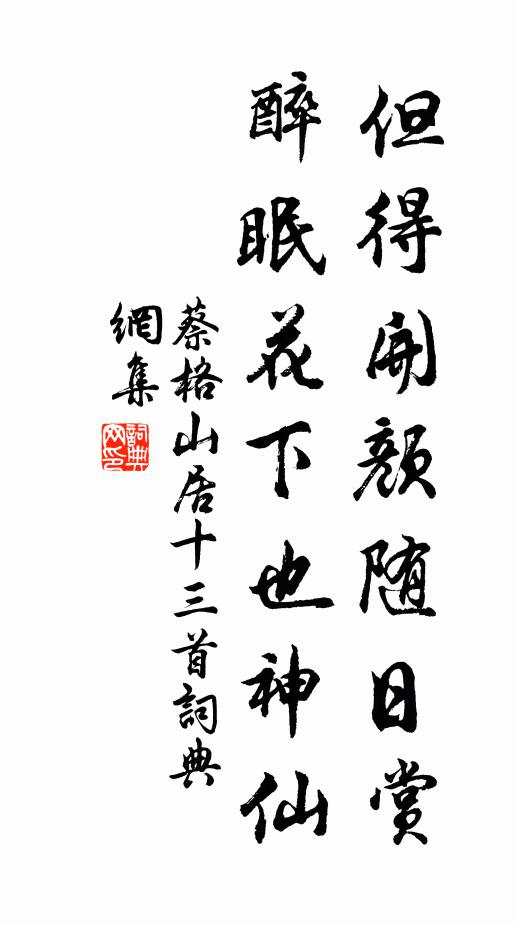 但得開顏随日賞
醉眠花下也神仙
蔡格山居十三首詞典
網集
詞典
网印